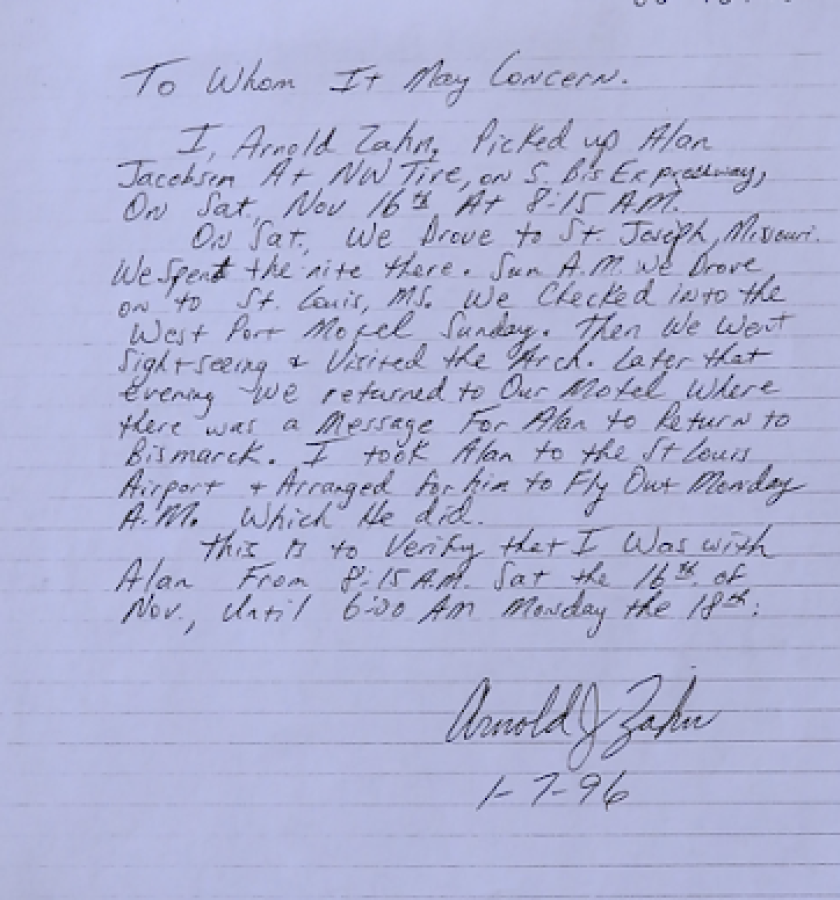 To Whom It May Concern.
I, Arnold Zahn, Picked up Alan
Jacobsen At NW Tire, on S. Bis Expressway,
On Sat, Nov 16th At 8:15 A.M.
On Sat, We Drove to St. Joseph, Missouri.
We Spent the nite there. Sun A.M. We Drove
on to St. Louis, MS. We Checked into the
West Port Motel Sunday. Then We Went
Sightseeing & Visited the Arch. Later that
evening We returned to Our Motel Where
there was a Message For Alan to Return to
Bismarck. I took Alan to the St Louis
Airport & Arranged for him to Fly Out Monday
A.M. Which He did.
This is to Verify that I Was with
Alan From 8:15 A.M. Sat the 16th of
Nov., Until 6:00 AM Monday the 18th.
Arnold J Zahn
1-7-96